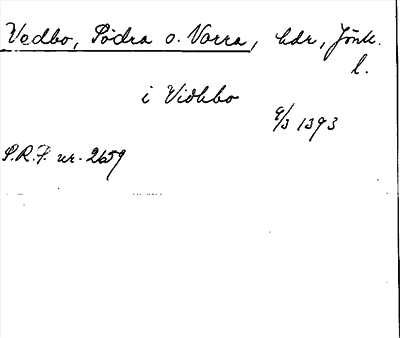 Vedbo, Södra o. Norra, hdr, Jönk.
l.
i Widhbo
9/3 1393
S.R.P. nr. 2659